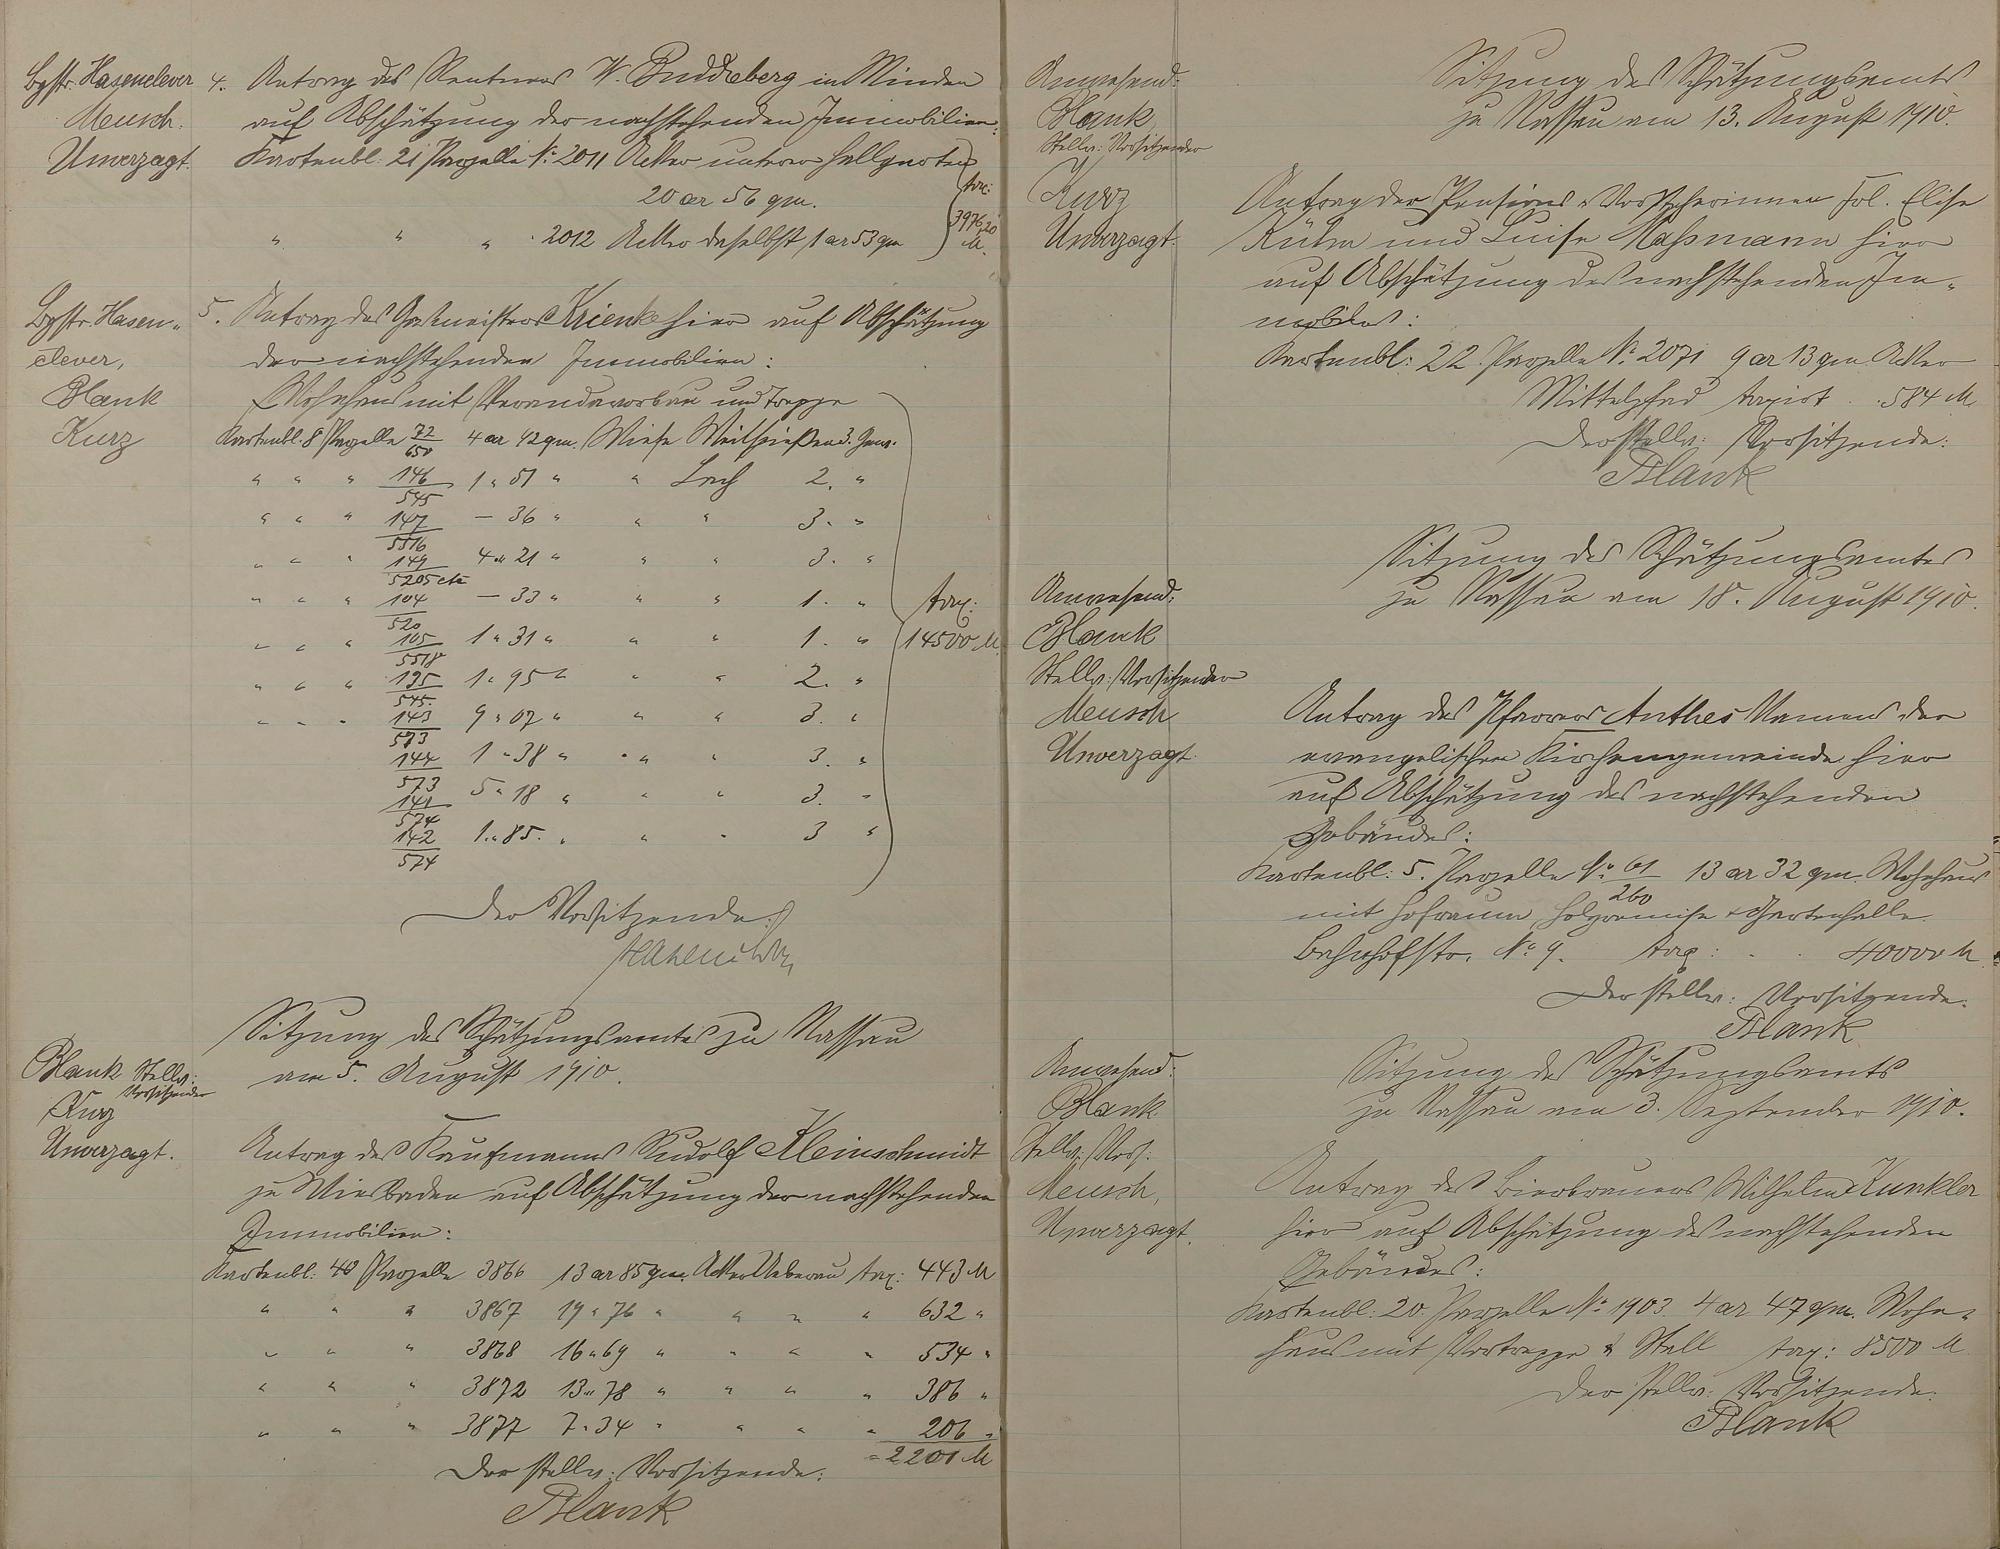 Bgstr. Hasenclever
Meusch.
Unverzagt.
4. Antrag des Rentners W. Buddeberg in Minden
auf Abschätzung der nachstehenden Immobilien:
Kartenbl: 21 Parzelle No: 2011 Acker unterm Hallgarten
20 ar 56 qm.
" " " 2012 Acker daselbst 1 ar 53 qm
tax:
3976,20
M.
Bgstr. Hasen-
clever,
Blank
Kurz
5. Antrag des Krienke hier auf Abschätzung
der nachstehenden Immobilien:
Wohnhaus mit Verandavorbau und Treppe
Kartenbl: 8 Parzelle 72/650 4 ar 42 qm. Wiese 3. Gew.
" " " 146/545 1 " 51 " " 2. "
" " " 147/5516 — 36 " " " 3. "
" " " 149/5205 etc 4 " 21 " " " 3. "
" " " 104/520 — 33 " " " 1. "
" " " 105/5518 1 " 31 " " " 1. "
" " " 195/545. 1 " 95 " " " 2. "
" " " 143/573 9 " 07 " " " 3. "
144/573 1 " 38 " " " 3. "
141/574 5 " 18 " " " 3. "
142/574 1 " 85. " " " 3 "
tax:
14500 M.
Der Vorsitzende:
Hasenclever
Blank Stellv:
Vorsitzender
Kurz
Unverzagt.
Sitzung des Schätzungsamtes zu Nassau
am 5. August 1910.
Antrag des Kaufmanns Rudolf Kleinschmidt
zu Wiesbaden auf Abschätzung der nachstehenden
Immobilien:
Kartenbl: 40 Parzelle 3866 13 ar 85 qm. Acker Ueberau tax: 443 M
" " " 3867 19 " 76 " " " " 632 "
" " " 3868 16 " 69 " " " " 534 "
" " " 3872 13 " 78 " " " " 386 "
" " " 3877 7 " 34 " " " " 206 "
= 2201 M
Der stellv: Vorsitzende:
Blank
Anwesend:
Blank
Stellv: Vorsitzender
Kurz
Unverzagt.
Sitzung des Schätzungsamts
zu Nassau am 13. August 1910.
Antrag der Pensions-Vorsteherinnen Frl. Elise
Kühn und Luise Maßmann hier
auf Abschätzung des nachstehenden Im-
mobiles:
Kartenbl: 22. Parzelle No: 2071 9 ar 13 qm Acker
Mittelpfad taxirt . . 584 M.
Der stellv: Vorsitzende:
Blank
Anwesend:
Blank
Stellv: Vorsitzender
Meusch
Unverzagt.
Sitzung des Schätzungsamtes
zu Nassau am 18. August 1910.
Antrag des Pfarrers Anthes Namens der
evangelischen Kirchengemeinde hier
auf Abschätzung des nachstehenden
Gebäudes:
Kartenbl: 5. Parzelle No: 61/260 13 ar 32 qm. Wohnhaus
mit Hofraum, Holzremise & Gartenhalle.
Bahnhofstr. No 9. tax: . . 40000 M.
Der stellv: Vorsitzende:
Blank
Anwesend:
Blank
Stellv: Vors:
Meusch,
Unverzagt.
Sitzung des Schätzungsamts
zu Nassau am 3. September 1910.
Antrag des Bierbrauers Wilhelm Kunkler
hier auf Abschätzung des nachstehenden
Gebäudes:
Kartenbl: 20. Parzelle No: 1903 4 ar 47 qm. Wohn-
haus mit Vortreppe & Stall tax: 8500 M
Der stellv: Vorsitzende:
Blank